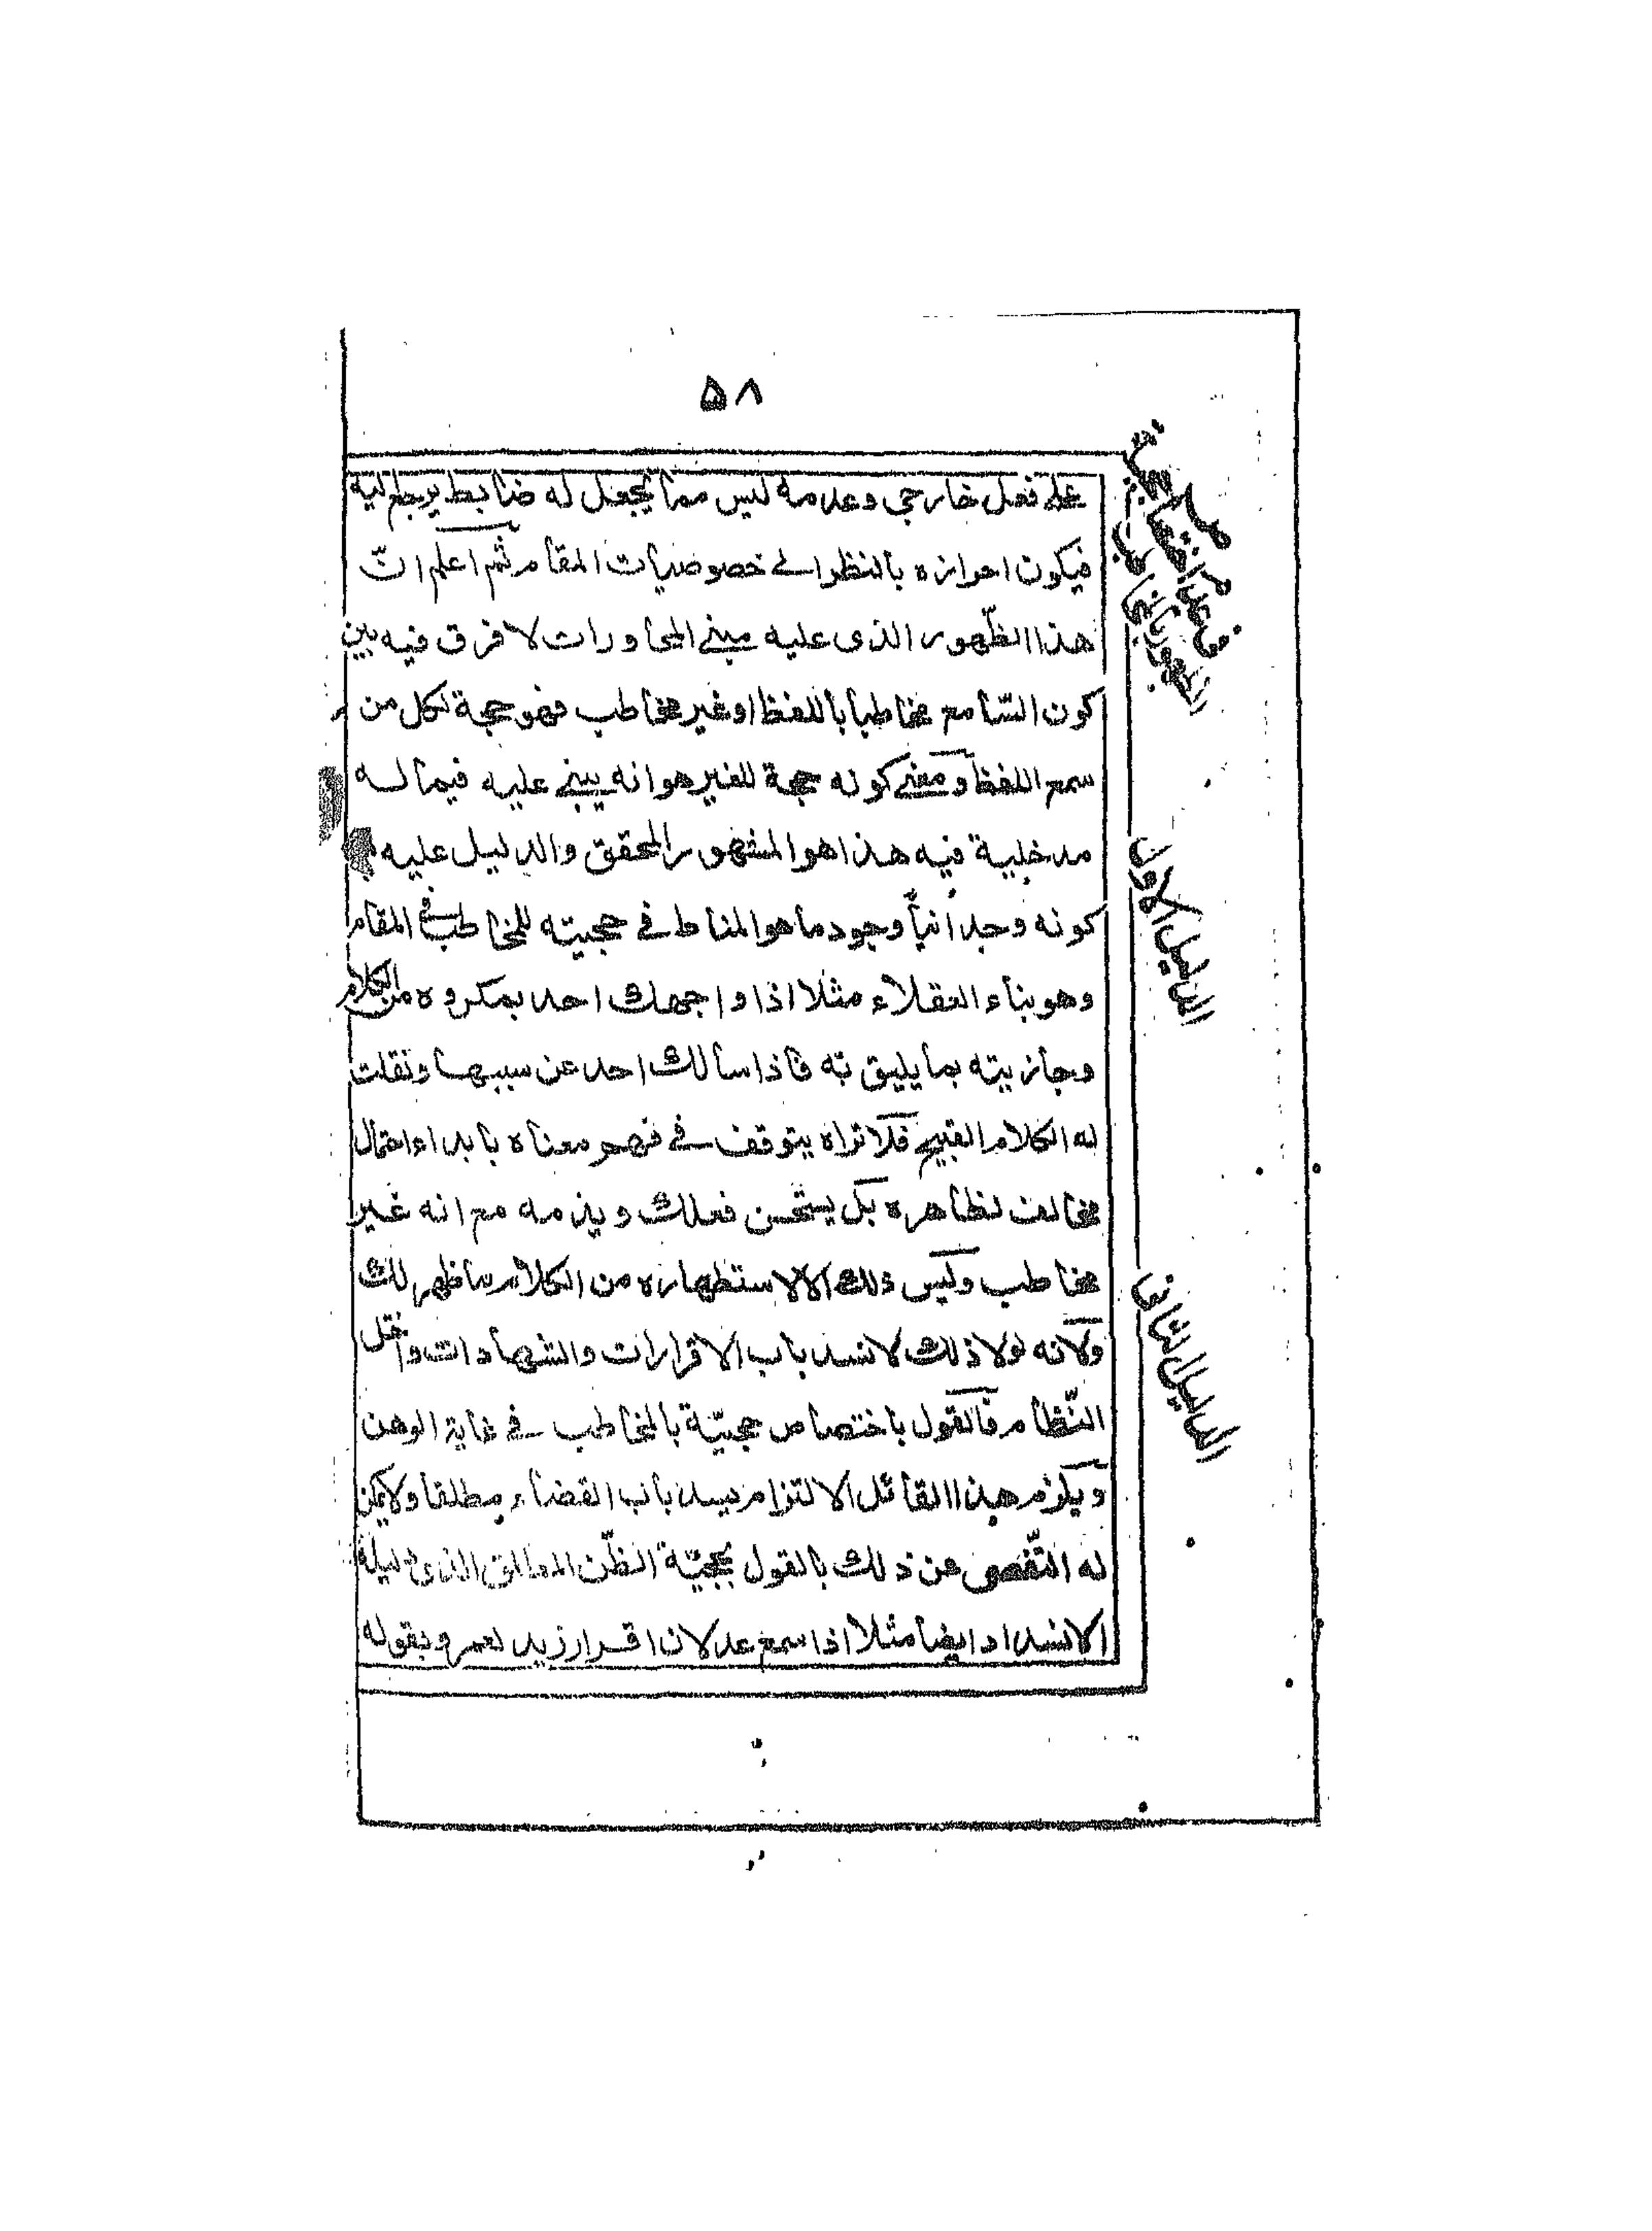 ۵۸
على فعل خارجي وعدمه ليس مما يجعل له ضابط يرجع اليه
فيكون احرازه بالنظر الى خصوصيات المقام ثم اعلم انّ
هذا الظّهور الذى عليه مبنى المحاورات لا فرق فيه بين
كون السّامع مخاطبا باللفظ او غير مخاطب فهو حجة لكل من
سمع اللفظ ومعنى كونه حجة للغير هو انه يبنى عليه فيما له
مدخلية فيه هذا هو المشهور المحقق والدليل عليه
كونه وجدانياً وجود ما هو المناط في حجيته للمخاطب في المقام
وهو بناء العقلاء مثلا اذا واجهك احد بمكروه من الكلام
وجازيته بما يليق به فاذا سألك احد عن سببها ونقلت
له الكلام القبيح فلا تراه يتوقف في فهم معناه بابداء احتمال
مخالف لظاهره بل يستحسن فعلك ويذمه مع انه غير
مخاطب وليس ذلك الا لاستظهاره من الكلام ما ظهر لك
ولانه لولا ذلك لانسد باب الاقرارات والشهادات واختل
النّظام فالقول باختصاص حجيّة بالمخاطب في غاية الوهن
ويلزم هذا القائل الالتزام بسد باب القضاء مطلقا ولا يمكن
له التّفصى عن ذلك بالقول بحجيّة الظّن المطلق الذى دليله
الانسداد ايضا مثلا اذا سمع عدلان اقرار زيد لعمرو بقوله
في عدم اختصاص
الدليل الاول
الدليل الثانى